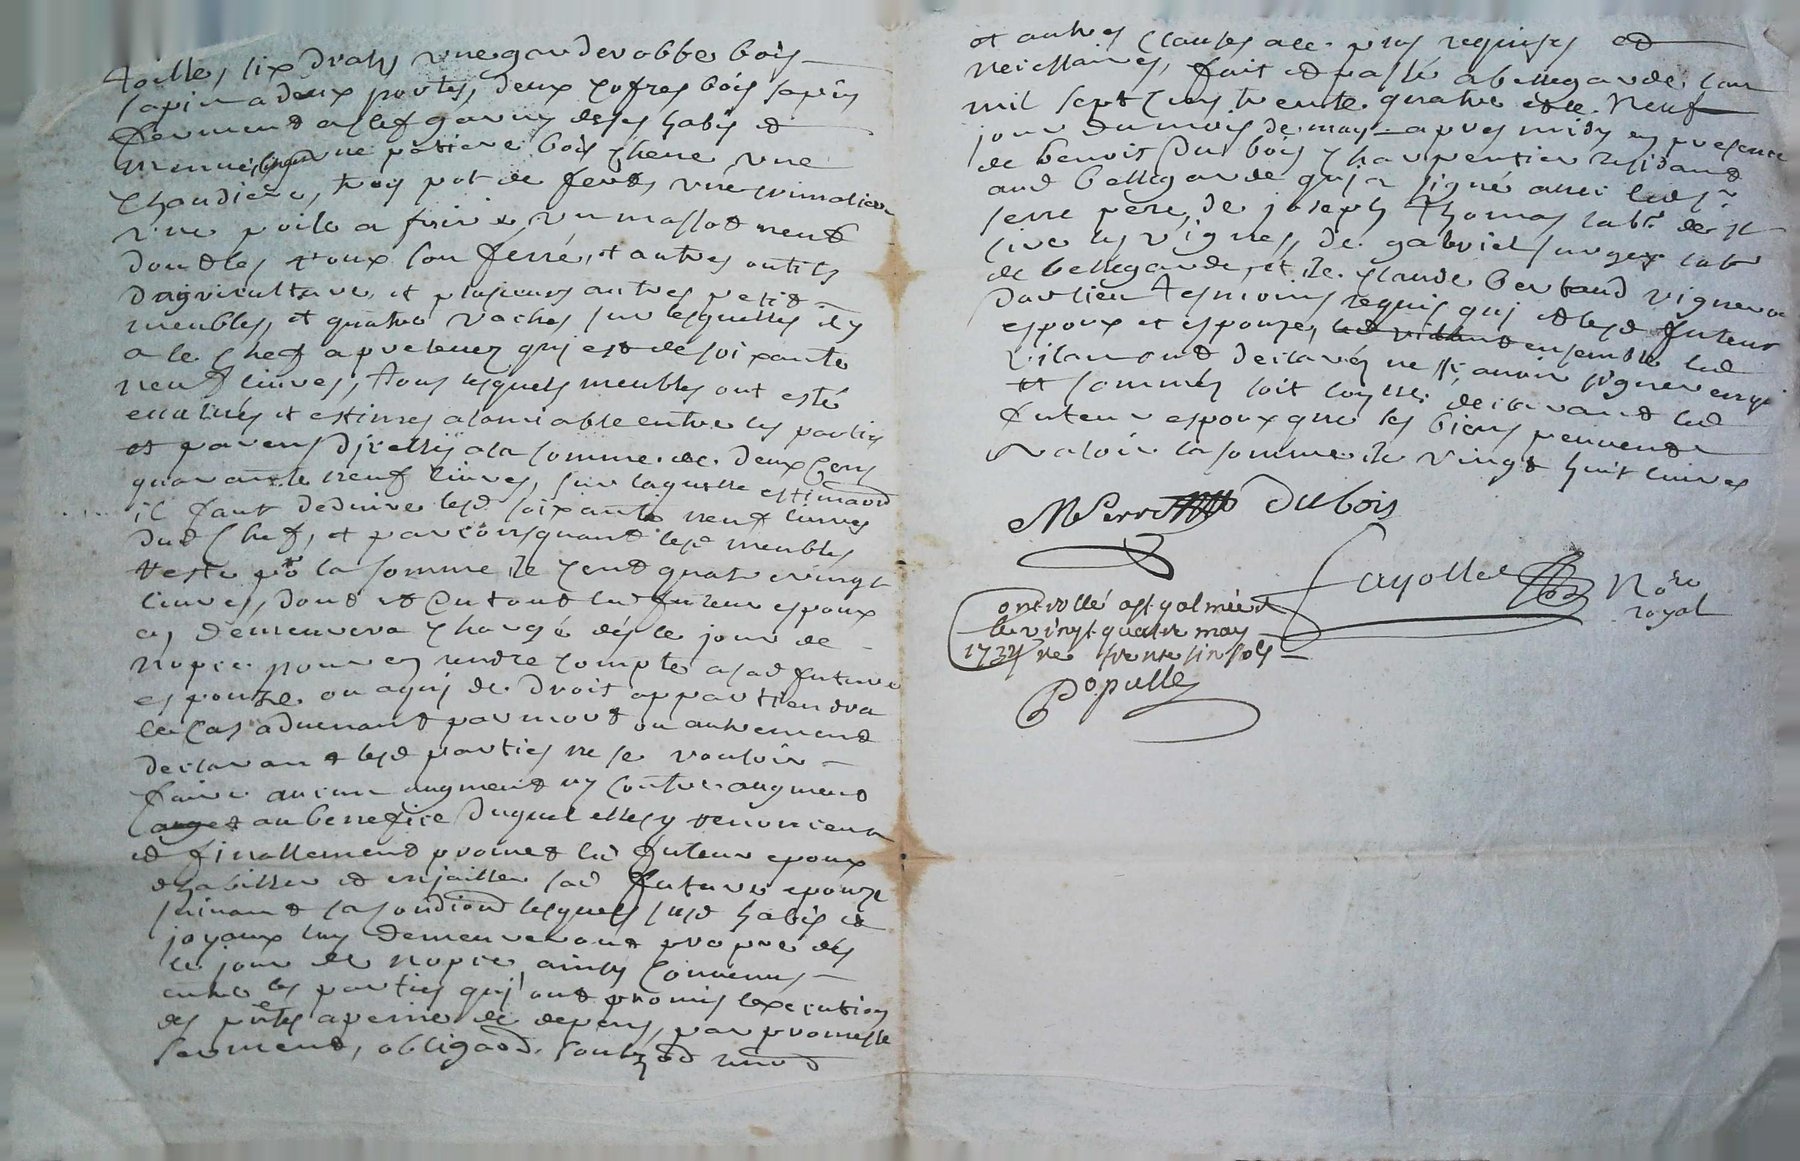 toille, six draps, une garderobbe bois
sapin a deux portes, deux cofres bois sapin
fermend a clef garny de ses habis et
une petiere bois chene une
chaudiere, trois pot de fert, une
une poile a frire un neuf
doubles son ferré, et autres outils
dagriculture, et plusieurs autres petit
meubles, et quatre vaches sur lesquelles il y
a le chef a prelever qui est de soixante
neuf livres, tous lesquels meubles ont esté
evalués et estimes a lamiable entre les parties
et parens dicelles a la somme de deux cens
quarante neuf livres, sur laquelle estimaõn
il faut deduire lesd soixante neuf livres
dud chef, et par consquant lesd meubles
reste pr la somme de cent quatrevingt
livres, dont et du tout led futeur espoux
en demeurera chargé dés le jour de
nopce pour en rendre compte a sad future
espouze ou a qui de droit appartiendra
le cas advenant par mort ou autrement
declarant lesd parties ne se vouloir
faire aucun augment ny contre augment
au benefice duquel elles y renoncent
et finallement promet led futeur epoux
dhabiller et enjailler sad future epouze
suivant sa condiõn lesquels susd habis et
joyaux luy demeureront propre dés
le jour de nopce, ainsy convenus
entre les parties qui ont promis lexecution
des pñtes a peine de depens, par promesse
serment, obligaõn, renõn
et autres clauses a ce requises et
neicessaires, fait et passé a bellegarde lan
mil sept cens trente quatre et le neuf
jour du mois de may apres midy en presence
de benoit du bois charpentier residant
aud bellegarde qui a signé avec led sr
serre pere, de joseph thomas labr de st
cire les vignes, de gabriel labr
de bellegarde, et de claude bertaud vigneron
tesmoins requis qui et lesd futeur
espoux et espouze, ensemble led
declarés ne sçavoir signer enquis
et sommés soit controllé declarant led
futeur espoux que ses biens peuvent
valoir la somme de vingt huit livres
Dubois
Fayolle Nore
royal
controllé a st galmier
le vingt quatre may
1734 trente six sols
Populle